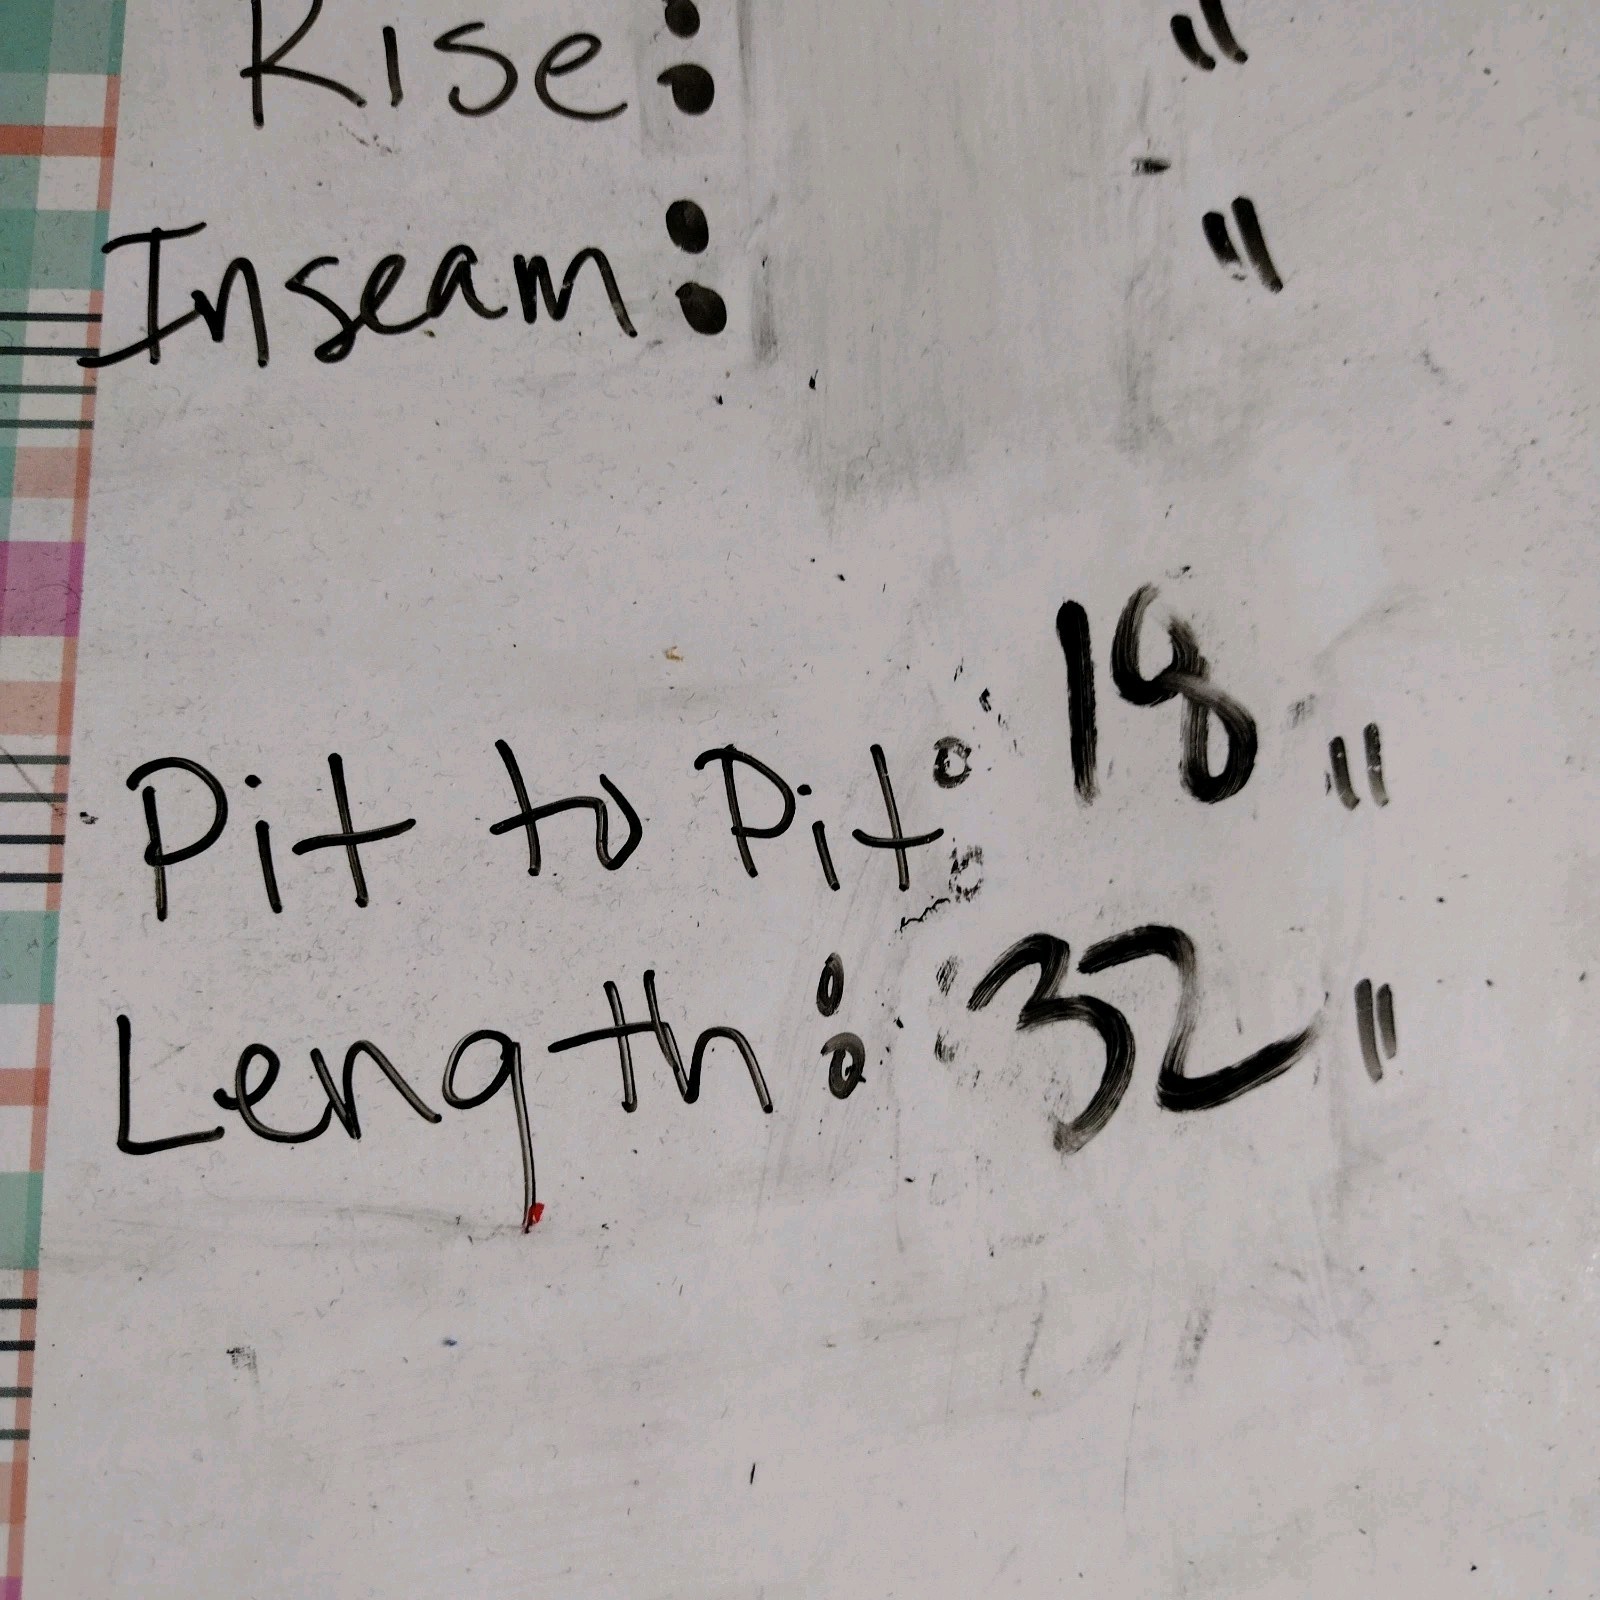 Rise: "
Inseam: "
Pit to Pit: 18"
Length: 32"